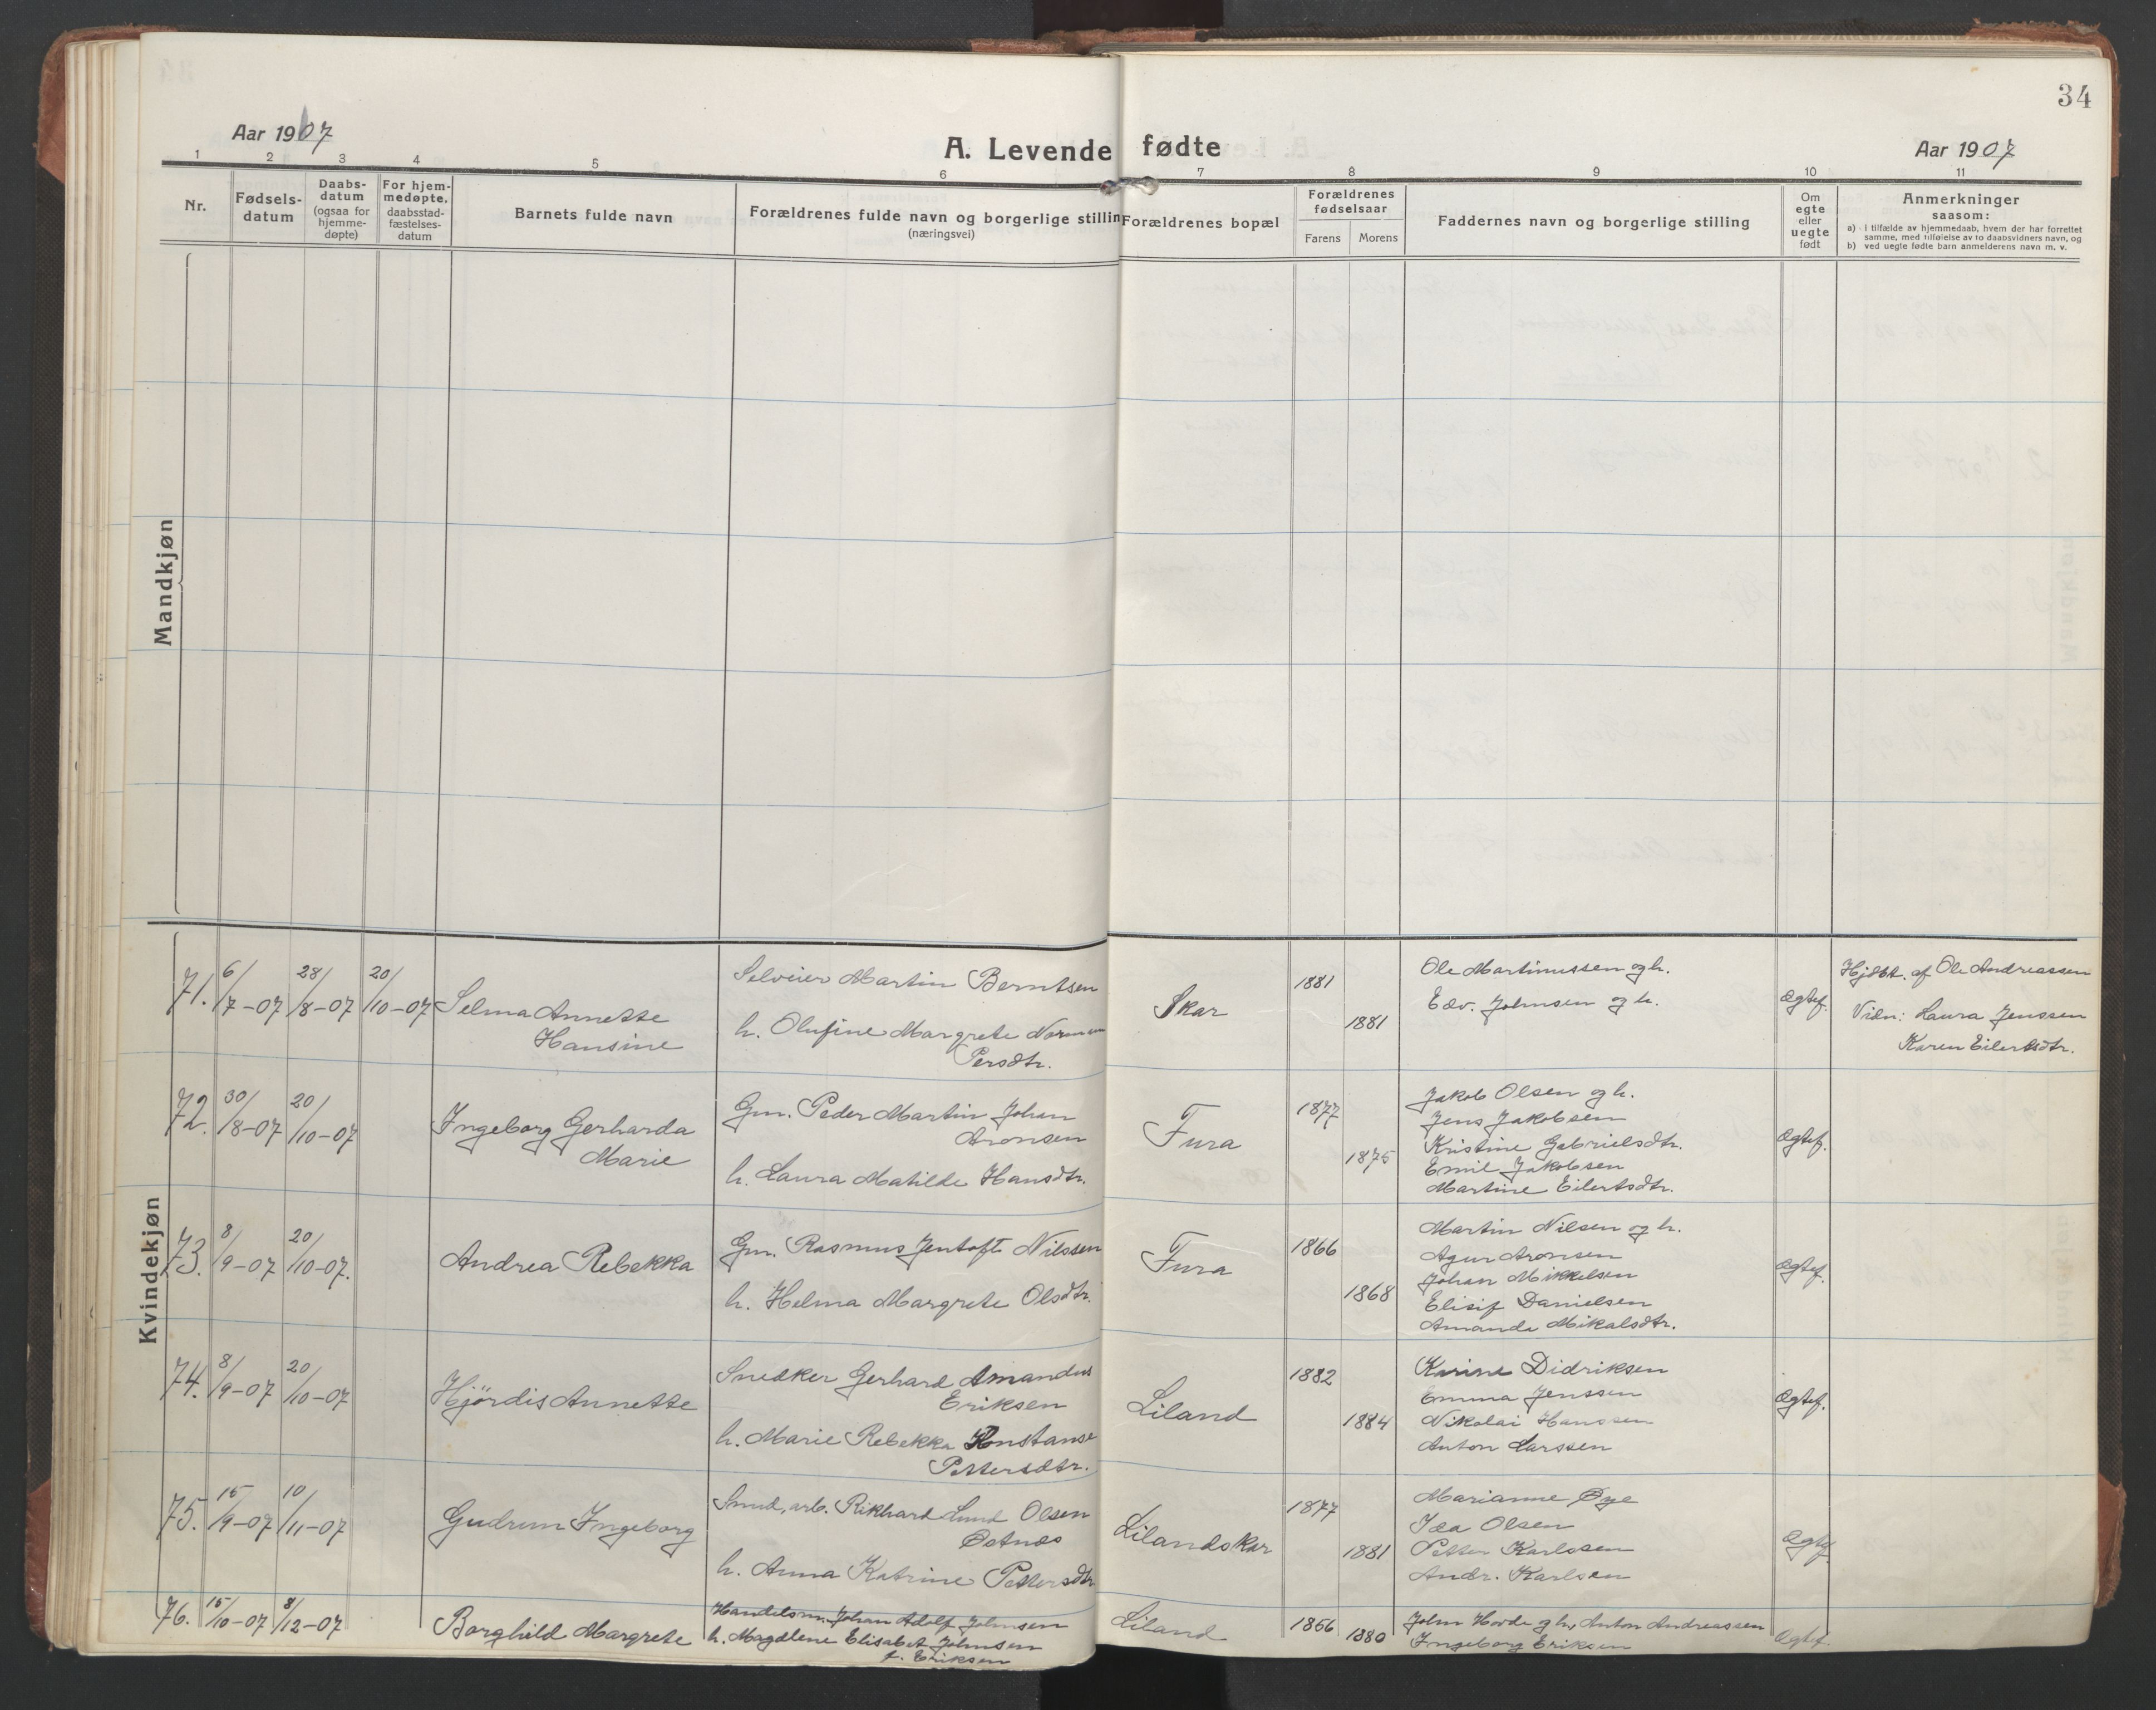 34
Aar 1907
A. Levende fødte
Aar 1907
1 2 3 4 5 6 7 8 9 10 11
Nr.
Fødsels-
datum
Daabs-
datum
(ogsaa for
hjemme-
døpte)
For hjem-
medøpte,
daabsstad-
fæstelses-
datum
Barnets fulde navn
Forældrenes fulde navn og borgerlige stillin
(næringsvei)
Forældrenes bopæl
Forældrenes
fødselsaar
Farens Morens
Faddernes navn og borgerlige stilling
Om
egte
eller
uegte
født
Anmerkninger
saasom:
a) i tilfælde av hjemmedaab, hvem der har forrettet
samme, med tilføielse av to daabsvidners navn, og
b) ved uegte fødte barn anmelderens navn m. v.
Mandkjøn
Kvindekjøn
71. 6/7-07 28/8-07 20/10-07
Selma Annette
Hansine
Selveier Martin Berntsen
h. Olufine Margrete Norman
Persdtr.
Skar
1881
1881
Ole Martinussen og h.
Edv. Johnsen og h.
Ægtef.
Hjdbt. af Ole Andreassen
Vidn: Laura Jenssen
Karen Eilertsdtr.
72. 30/8-07 20/10-07
Ingeborg Gerharda
Marie
Gm. Peder Martin Johan
Aronsen
h. Laura Matilde Hansdtr.
Fura
1877
1875
Jakob Olsen og h.
Jens Jakobsen
Kristine Gabrielsdtr.
Emil Jakobsen
Martine Eilertsdtr.
Ægtef.
73. 8/9-07 20/10-07.
Andrea Rebekka
Gm. Rasmus Jentoft Nilssen
h. Helma Margrete Olsdtr.
Fura
1866
1868
Martin Nilsen og h.
Agur Aronsen
Johan Mikkelsen
Elisif Danielsen
Amanda Mikalsdtr.
Ægtef.
74. 8/9-07 20/10-07
Hjördis Annette
Snedker Gerhard Amandus
Eriksen
h. Marie Rebekka Konstanse
Pettersdtr.
Liland
1882
1884
Karine Didriksen
Emma Jenssen
Nikolai Hanssen
Anton Larssen
Ægtef.
75. 15/9-07 10/11-07
Gudrun Ingeborg
Smed, arb. Rikhard Lund Olsen
Øetnes
h. Anna Katrine Pettersdtr
Lilandskar
1877
1881
Marianne Øye
Ida Olsen
Petter Karlssen
Andr. Karlsen
Ægtef
76. 15/10-07 8/12-07
Borghild Margrete
Handelsm. Johan Adolf Johnsen
h. Magdlene Elisabet Johnsen
f. Eriksen
Liland
1866
1880
John Horde og h, Anton Andreassen
Ingeborg Eriksen
Ægtef.